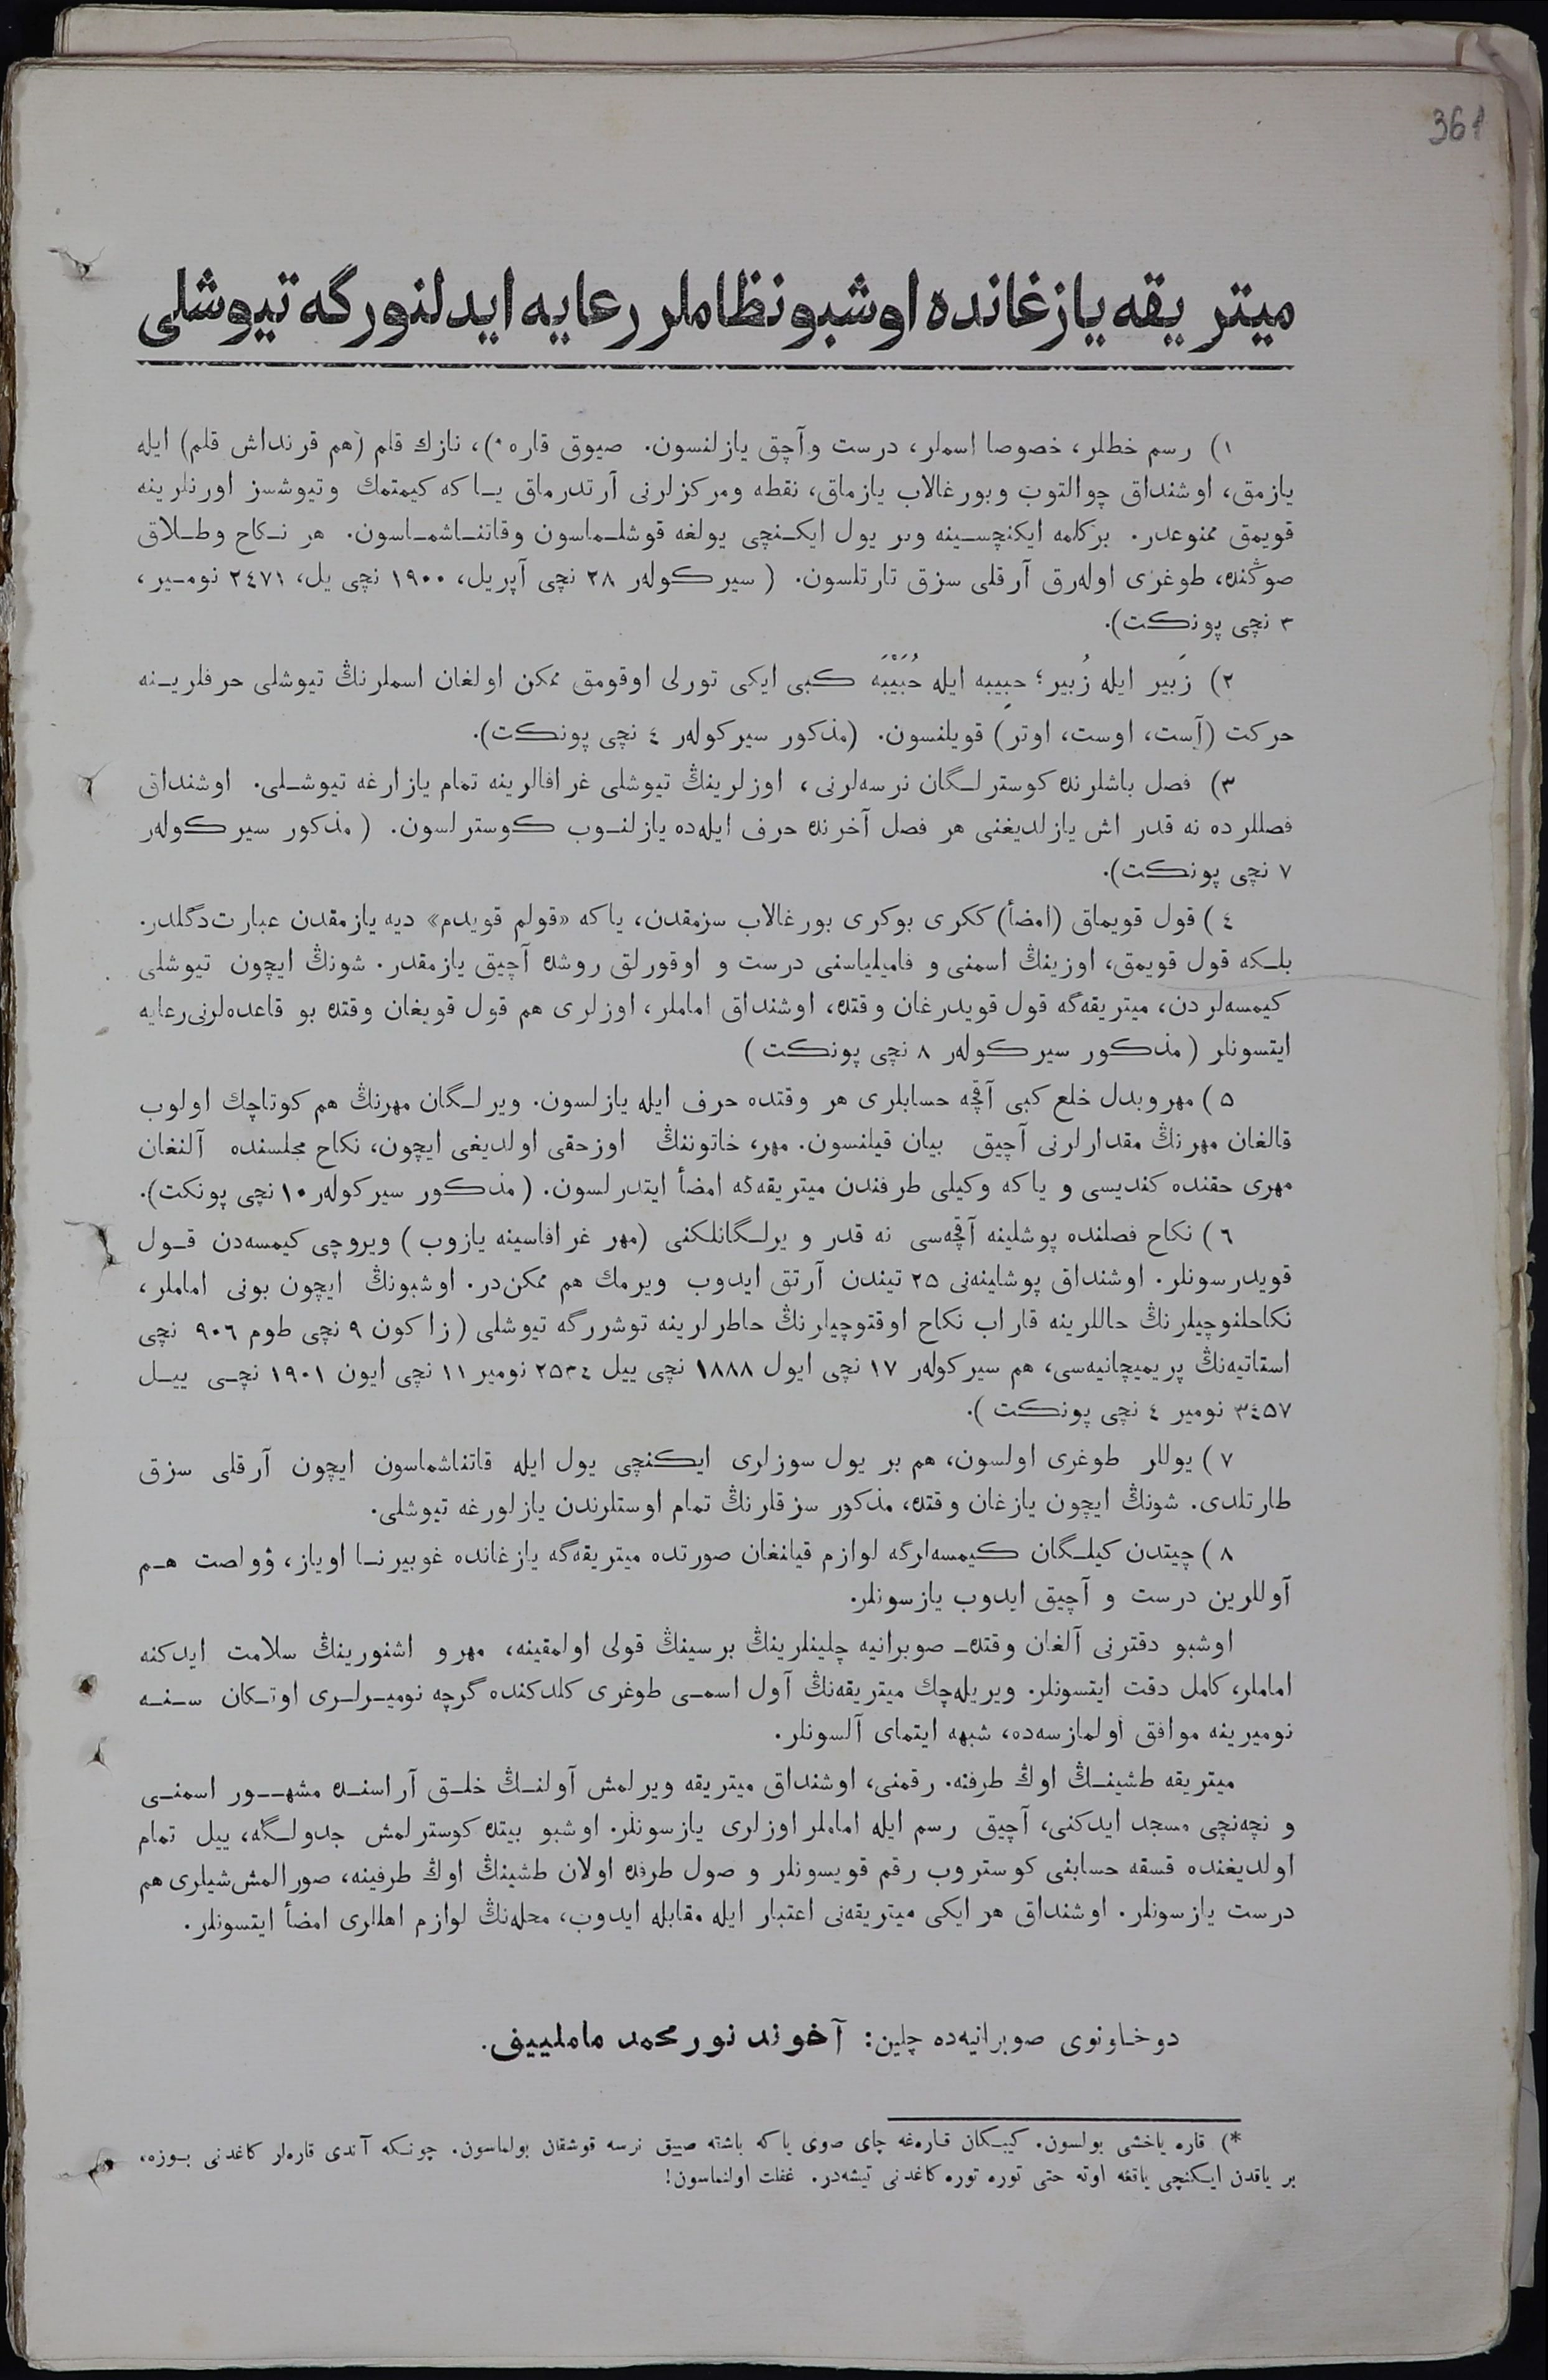 361
میتریقه یازغانده اوشبو نظاملر رعایه ایدلنورگه تیوشلی
۱) رسم خطلر، خصوصا اسملر، درست وآچق یازلنسون. صیوق قاره *)، نازك قلم (هم قرنداش قلم) ایله
یازمق، اوشنداق چوالتوب وبورغالاب یازماق، نقطه ومرکزلرنی آرتدرماق یــاکه کیمتمك وتیوشسز اورنلرینه
قویمق ممنوعدر. برکلمه ایکنچســینه وبر یول ایکــنچی یولغه قوشلــماسون وقاتنــاشمــاسون. هر نــکاح وطــلاق
صوڭنده، طوغری اوله‌رق آرقلی سزق تارتلسون. (سیرکوله‌ر ۲۸ نچی آپریل، ۱۹۰۰ نچی یل، ۲٤۷۱ نومــیر،
۳ نچی پونکت).
۲) زَبیر ایله زُبیر؛ حبِیبه ایله حُبَیْبَه کبی ایکی تورلی اوقومق ممکن اولغان اسملرنڭ تیوشلی حرفلریــنه
حرکت (آست، اوست، اوتر) قویلنسون. (مذکور سیرکوله‌ر ٤ نچی پونکت).
۳) فصل باشلرنده کوسترلــگان نرسه‌لرنی، اوزلرینڭ تیوشلی غرافالرینه تمام یازارغه تیوشــلی. اوشنداق
فصللرده نه قدر اش یازلدیغنی هر فصل آخرنده حرف ایله‌ده یازلنــوب کوسترلسون. (مذکور سیرکوله‌ر
۷ نچی پونکت).
٤) قول قویماق (امضأ) ککری بوکری بورغالاب سزمقدن، یاکه «قولم قویدم» دیه یازمقدن عبارت دگلدر.
بلــکه قول قویمق، اوزینڭ اسمنی و فامیلیاسنی درست و اوقورلق روشده آچیق یازمقدر. شونڭ ایچون تیوشلی
کیمسه‌لردن، میتریقه‌گه قول قویدرغان وقتده، اوشنداق اماملر، اوزلری هم قول قویغان وقتده بو قاعده‌لرنی رعایه
ایتسونلر (مذکور سیرکوله‌ر ۸ نچی پونکت)
۵) مهر وبدل خلع کبی آقچه حسابلری هر وقتده حرف ایله یازلسون. ویرلــگان مهرنڭ هم کوتاچك اولوب
قالغان مهرنڭ مقدارلرنی آچیق بیان قیلنسون. مهر، خاتوننڭ اوز حقی اولدیغی ایچون، نکاح مجلسنده آلنغان
مهری حقنده کندیسی و یاکه وکیلی طرفندن میتریقه‌گه امضأ ایتدرلسون. (مذکور سیرکوله‌ر ۱۰ نچی پونکت).
٦) نکاح فصلنده پوشلینه آقچه‌سی نه قدر ویرلــگانلکنی (مهر غرافاسینه یازوب) ویروچی کیمسه‌دن قــول
قویدرسونلر. اوشنداق پوشلینه‌نی ۲۵ تیندن آرتق ایدوب ویرمك هم ممکن‌در. اوشبونڭ ایچون بونی اماملر،
نکاحلنوچیلرنڭ حاللرینه قاراب نکاح اوقتوچیلرنڭ خاطرلرینه توشررگه تیوشلی (زاکون ۹ نچی طوم ۹۰٦ نچی
استاتیه‌نڭ پریمیچانیه‌سی، هم سیرکوله‌ر ۱۷ نچی ایول ۱۸۸۸ نچی ییل ۲۵۳٤ نومیر ۱۱ نچی ایون ۱۹۰۱ نچــی ییــل
۳٤۵۷ نومیر ٤ نچی پونکت).
۷) یوللر طوغری اولسون، هم بر یول سوزلری ایکنچی یول ایله قاتناشماسون ایچون آرقلی سزق
طارتلدی. شونڭ ایچون یازغان وقتده، مذکور سزقلرنڭ تمام اوستلرندن یازلورغه تیوشلی.
۸) چیتدن کیلــگان کیمسه‌لرگه لوازم قیلنغان صورتده میتریقه‌گه یازغانده غوبیرنــا اویاز، ۋواصت هــم
آوللرین درست و آچیق ایدوب یازسونلر.
اوشبو دفترنی آلغان وقتده صوبرانیه چلینلرینڭ برسینڭ قولی اولمقینه، مهر و اشنورینڭ سلامت ایدکنه
اماملر، کامل دقت ایتسونلر. ویریله‌چك میتریقه‌نڭ آول اسمــی طوغری کلدکنده گرچه نومیــرلــری اوتــکان ســنــه
نومیرینه موافق اولمازسه‌ده، شبهه ایتمای آلسونلر.
میتریقه طشینــڭ اوڭ طرفنه. رقمنی، اوشنداق میتریقه ویرلمش آولنــڭ خلــق آراسنــده مشهــور اسمنــی
و نچه‌نچی مسجد ایدکنی، آچیق رسم ایله اماملر اوزلری یازسونلر. اوشبو بیتده کوسترلمش جدولــگه، ییل تمام
اولدیغنده قسقه حسابنی کوستروب رقم قویسونلر و صول طرفده اولان طشینڭ اوڭ طرفینه، صورالمش شیلری هم
درست یازسونلر. اوشنداق هر ایکی میتریقه‌نی اعتبار ایله مقابله ایدوب، محله‌نڭ لوازم اهللری امضأ ایتسونلر.
دوخاونوی صوبرانیه‌ده چلین: آخوند نورمحمد ماملییف.
*) قاره یاخشی بولسون. کیبــکان قاره‌غه چای صوی یاکه باشته صیق نرسه قوشقان بولماسون. چونــکه آندی قاره‌لر کاغدنی بــوزه،
بر یاقدن ایــکنچی یاقغه اوته حتی توره توره کاغدنی تیشه‌در. غفلت اولنماسون!